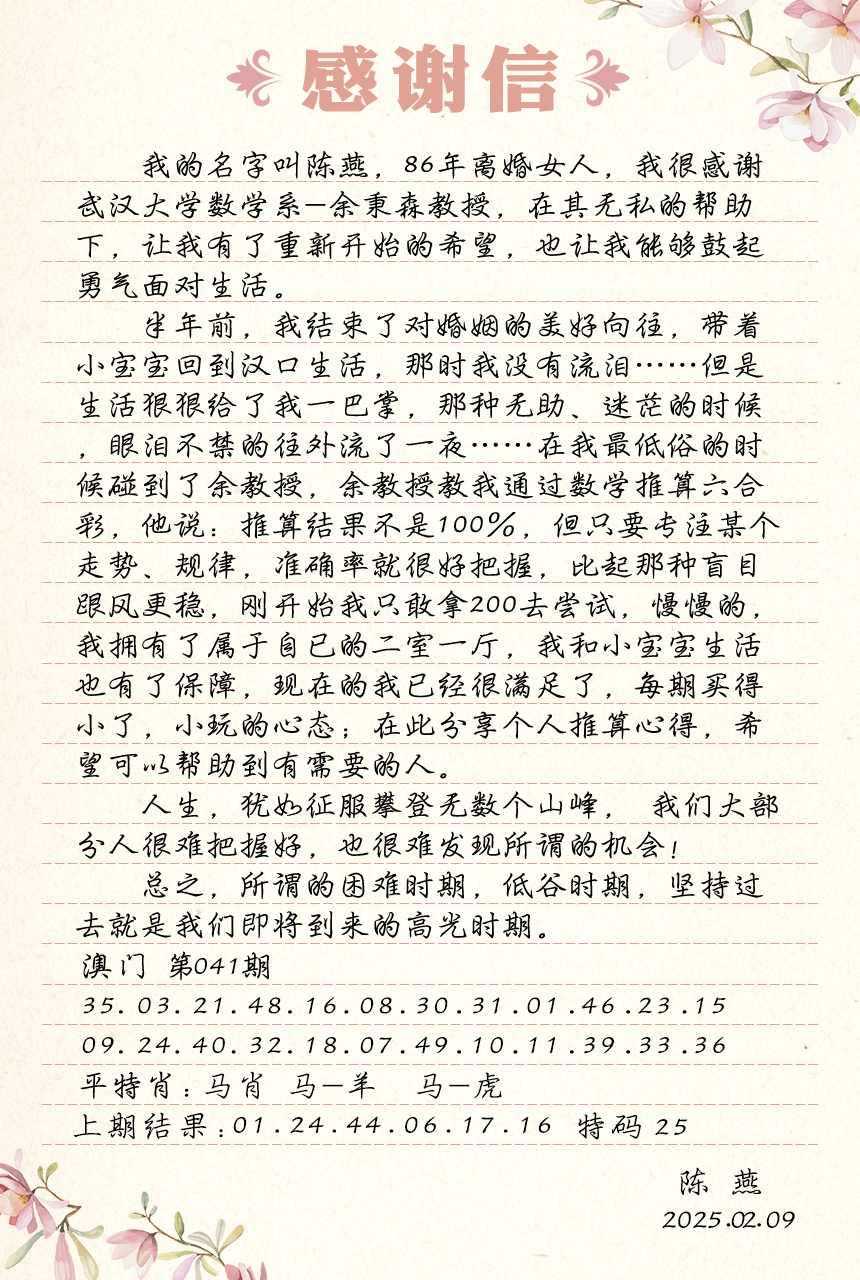 感谢信
我的名字叫陈燕，86年离婚女人，我很感谢
武汉大学数学系—余秉森教授，在其无私的帮助
下，让我有了重新开始的希望，也让我能够鼓起
勇气面对生活。
半年前，我结束了对婚姻的美好向往，带着
小宝宝回到汉口生活，那时我没有流泪……但是
生活狠狠给了我一巴掌，那种无助、迷茫的时候
，眼泪不禁的往外流了一夜……在我最低俗的时
候碰到了余教授，余教授教我通过数学推算六合
彩，他说：推算结果不是100%，但只要专注某个
走势、规律，准确率就很好把握，比起那种盲目
跟风更稳，刚开始我只敢拿200去尝试，慢慢的，
我拥有了属于自已的二室一厅，我和小宝宝生活
也有了保障，现在的我已经很满足了，每期买得
小了，小玩的心态；在此分享个人推算心得，希
望可以帮助到有需要的人。
人生，犹如征服攀登无数个山峰， 我们大部
分人很难把握好，也很难发现所谓的机会！
总之，所谓的困难时期，低谷时期，坚持过
去就是我们即将到来的高光时期。
澳门 第041期
35.03.21.48.16.08.30.31.01.46.23.15
09.24.40.32.18.07.49.10.11.39.33.36
平特肖：马肖 马—羊 马—虎
上期结果：01.24.44.06.17.16 特码 25
陈 燕
2025.02.09